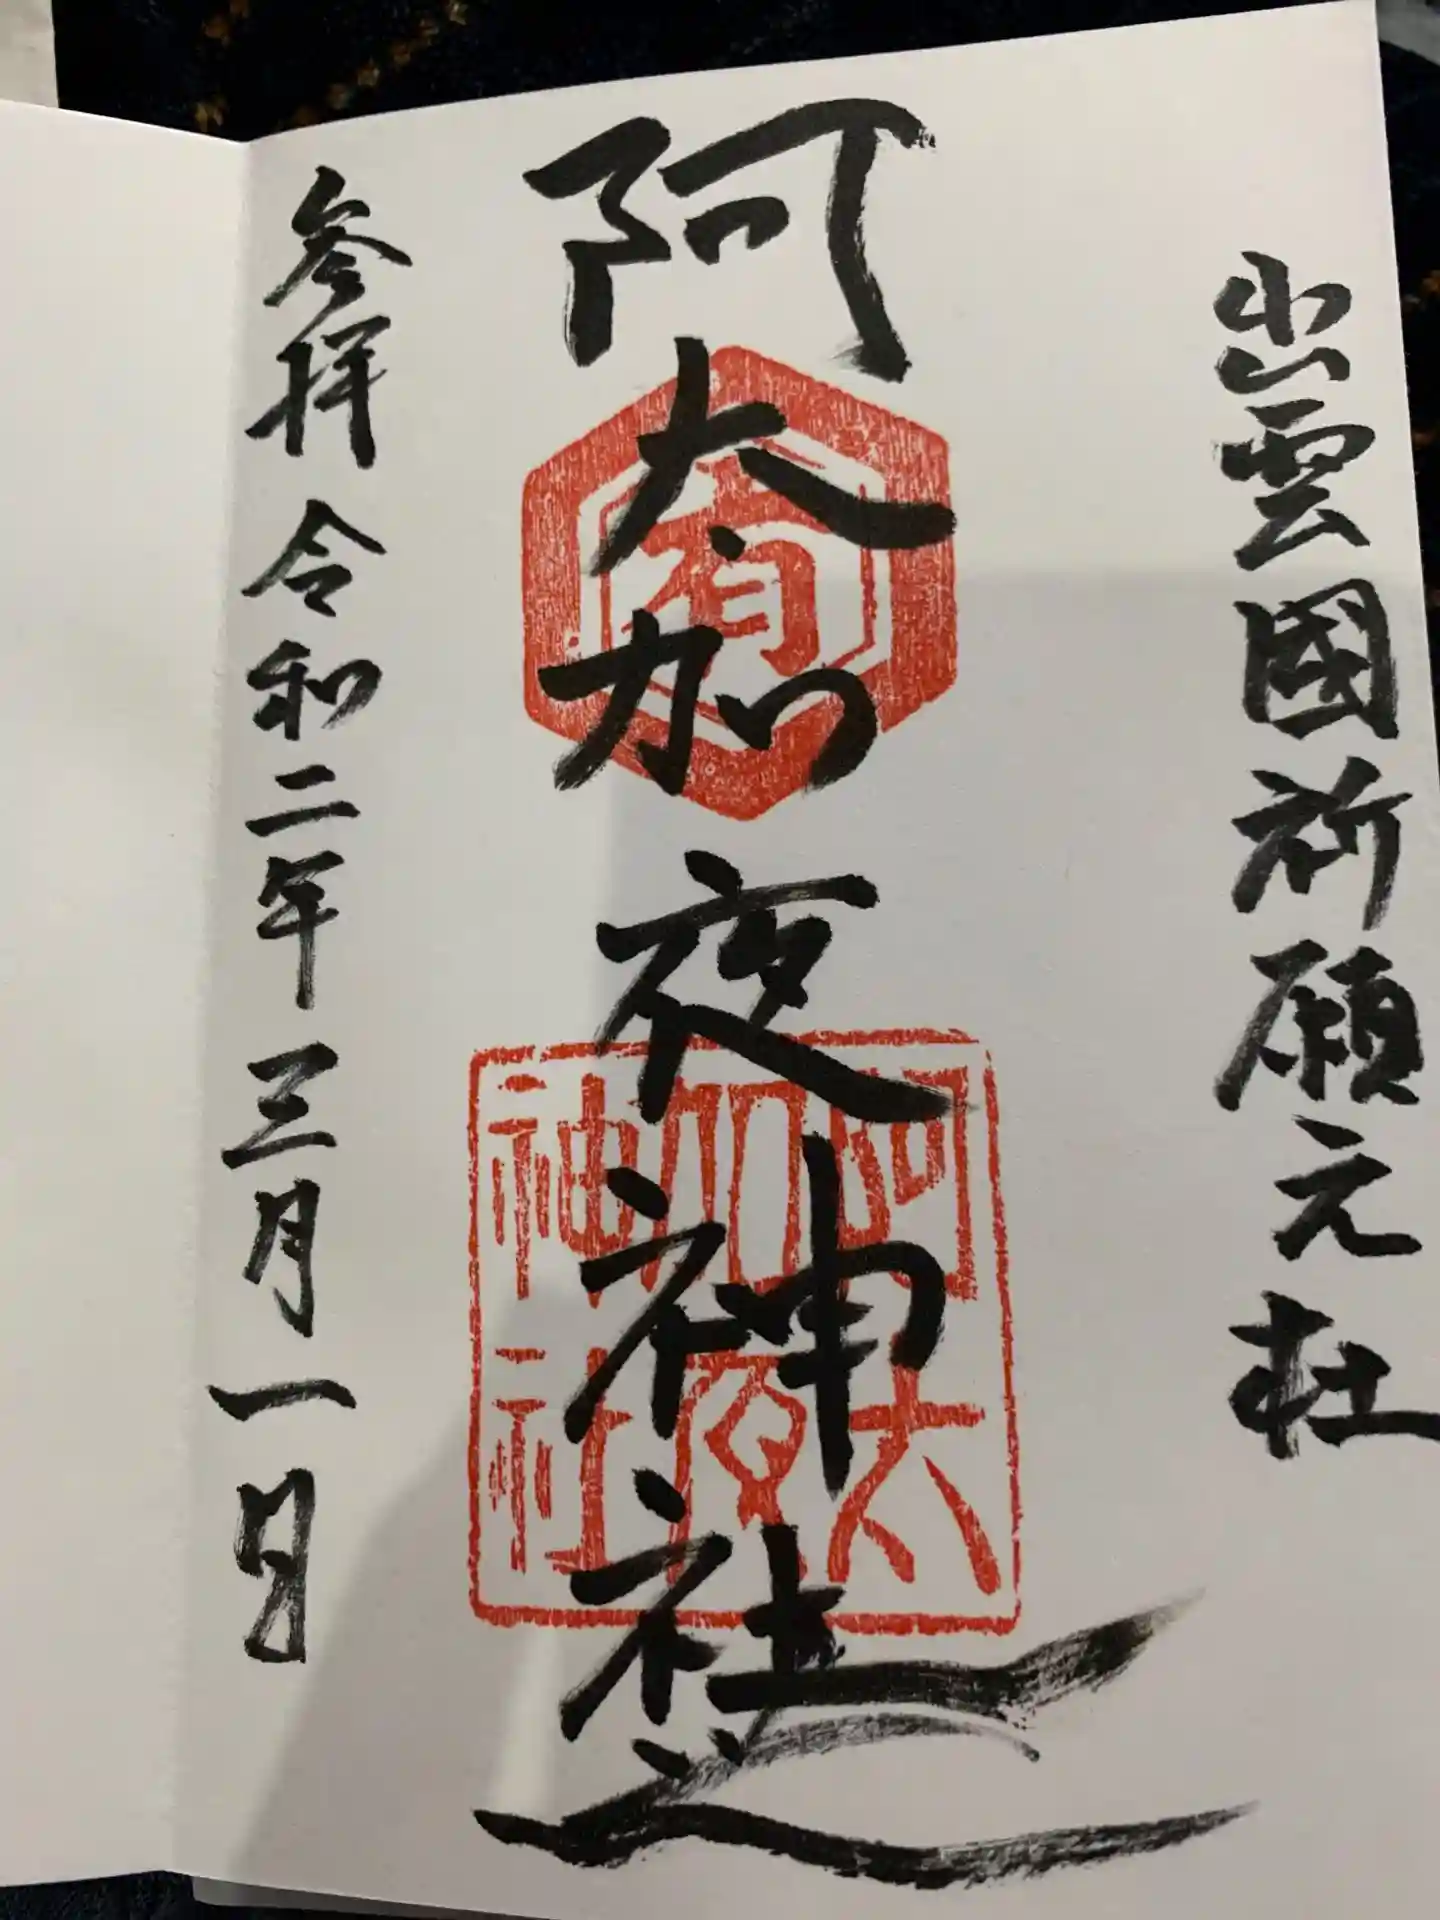 出雲國祈願元社
阿太加夜神社之
有
阿太
加夜
神社
参拝 令和二年三月一日